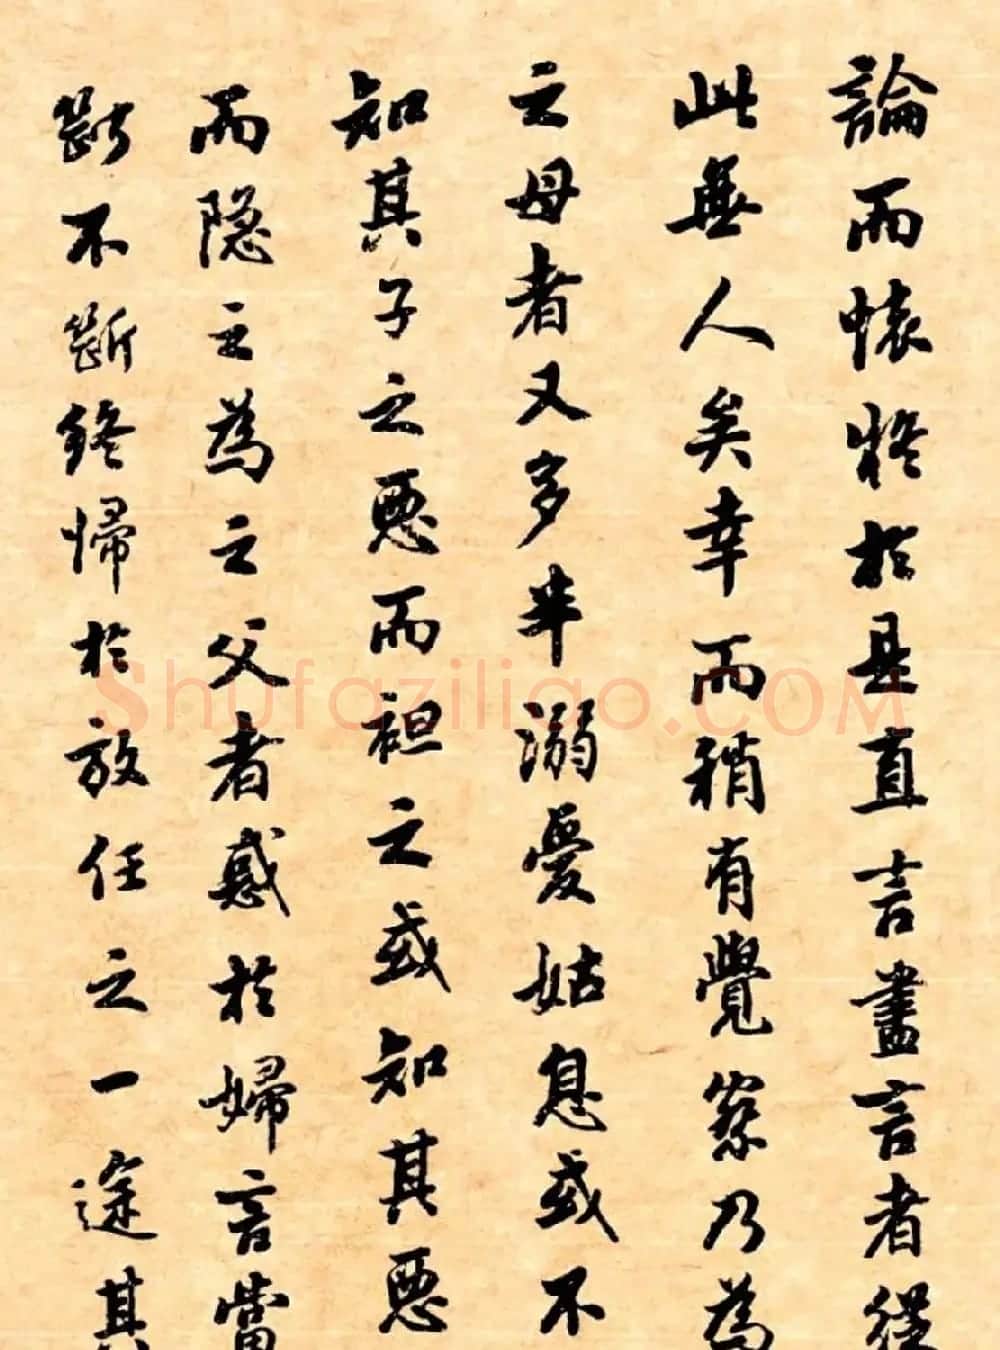 論而懐将於是直言盡言者從
此無人矣幸而稍有覺察乃為
之母者又多半溺愛姑息或不
知其子之惡而袒之或知其惡
而隐之為之父者惑於婦言當
斷不斷終歸於放任之一途其
Shufaziliao.COM